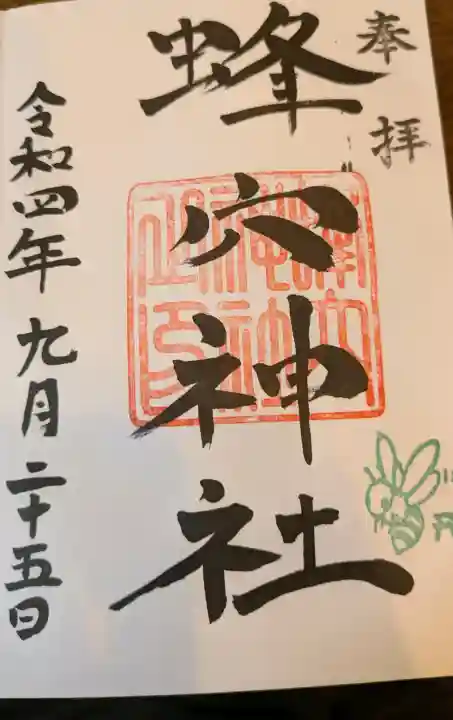 奉拝
蜂穴神社
令和四年九月二十五日